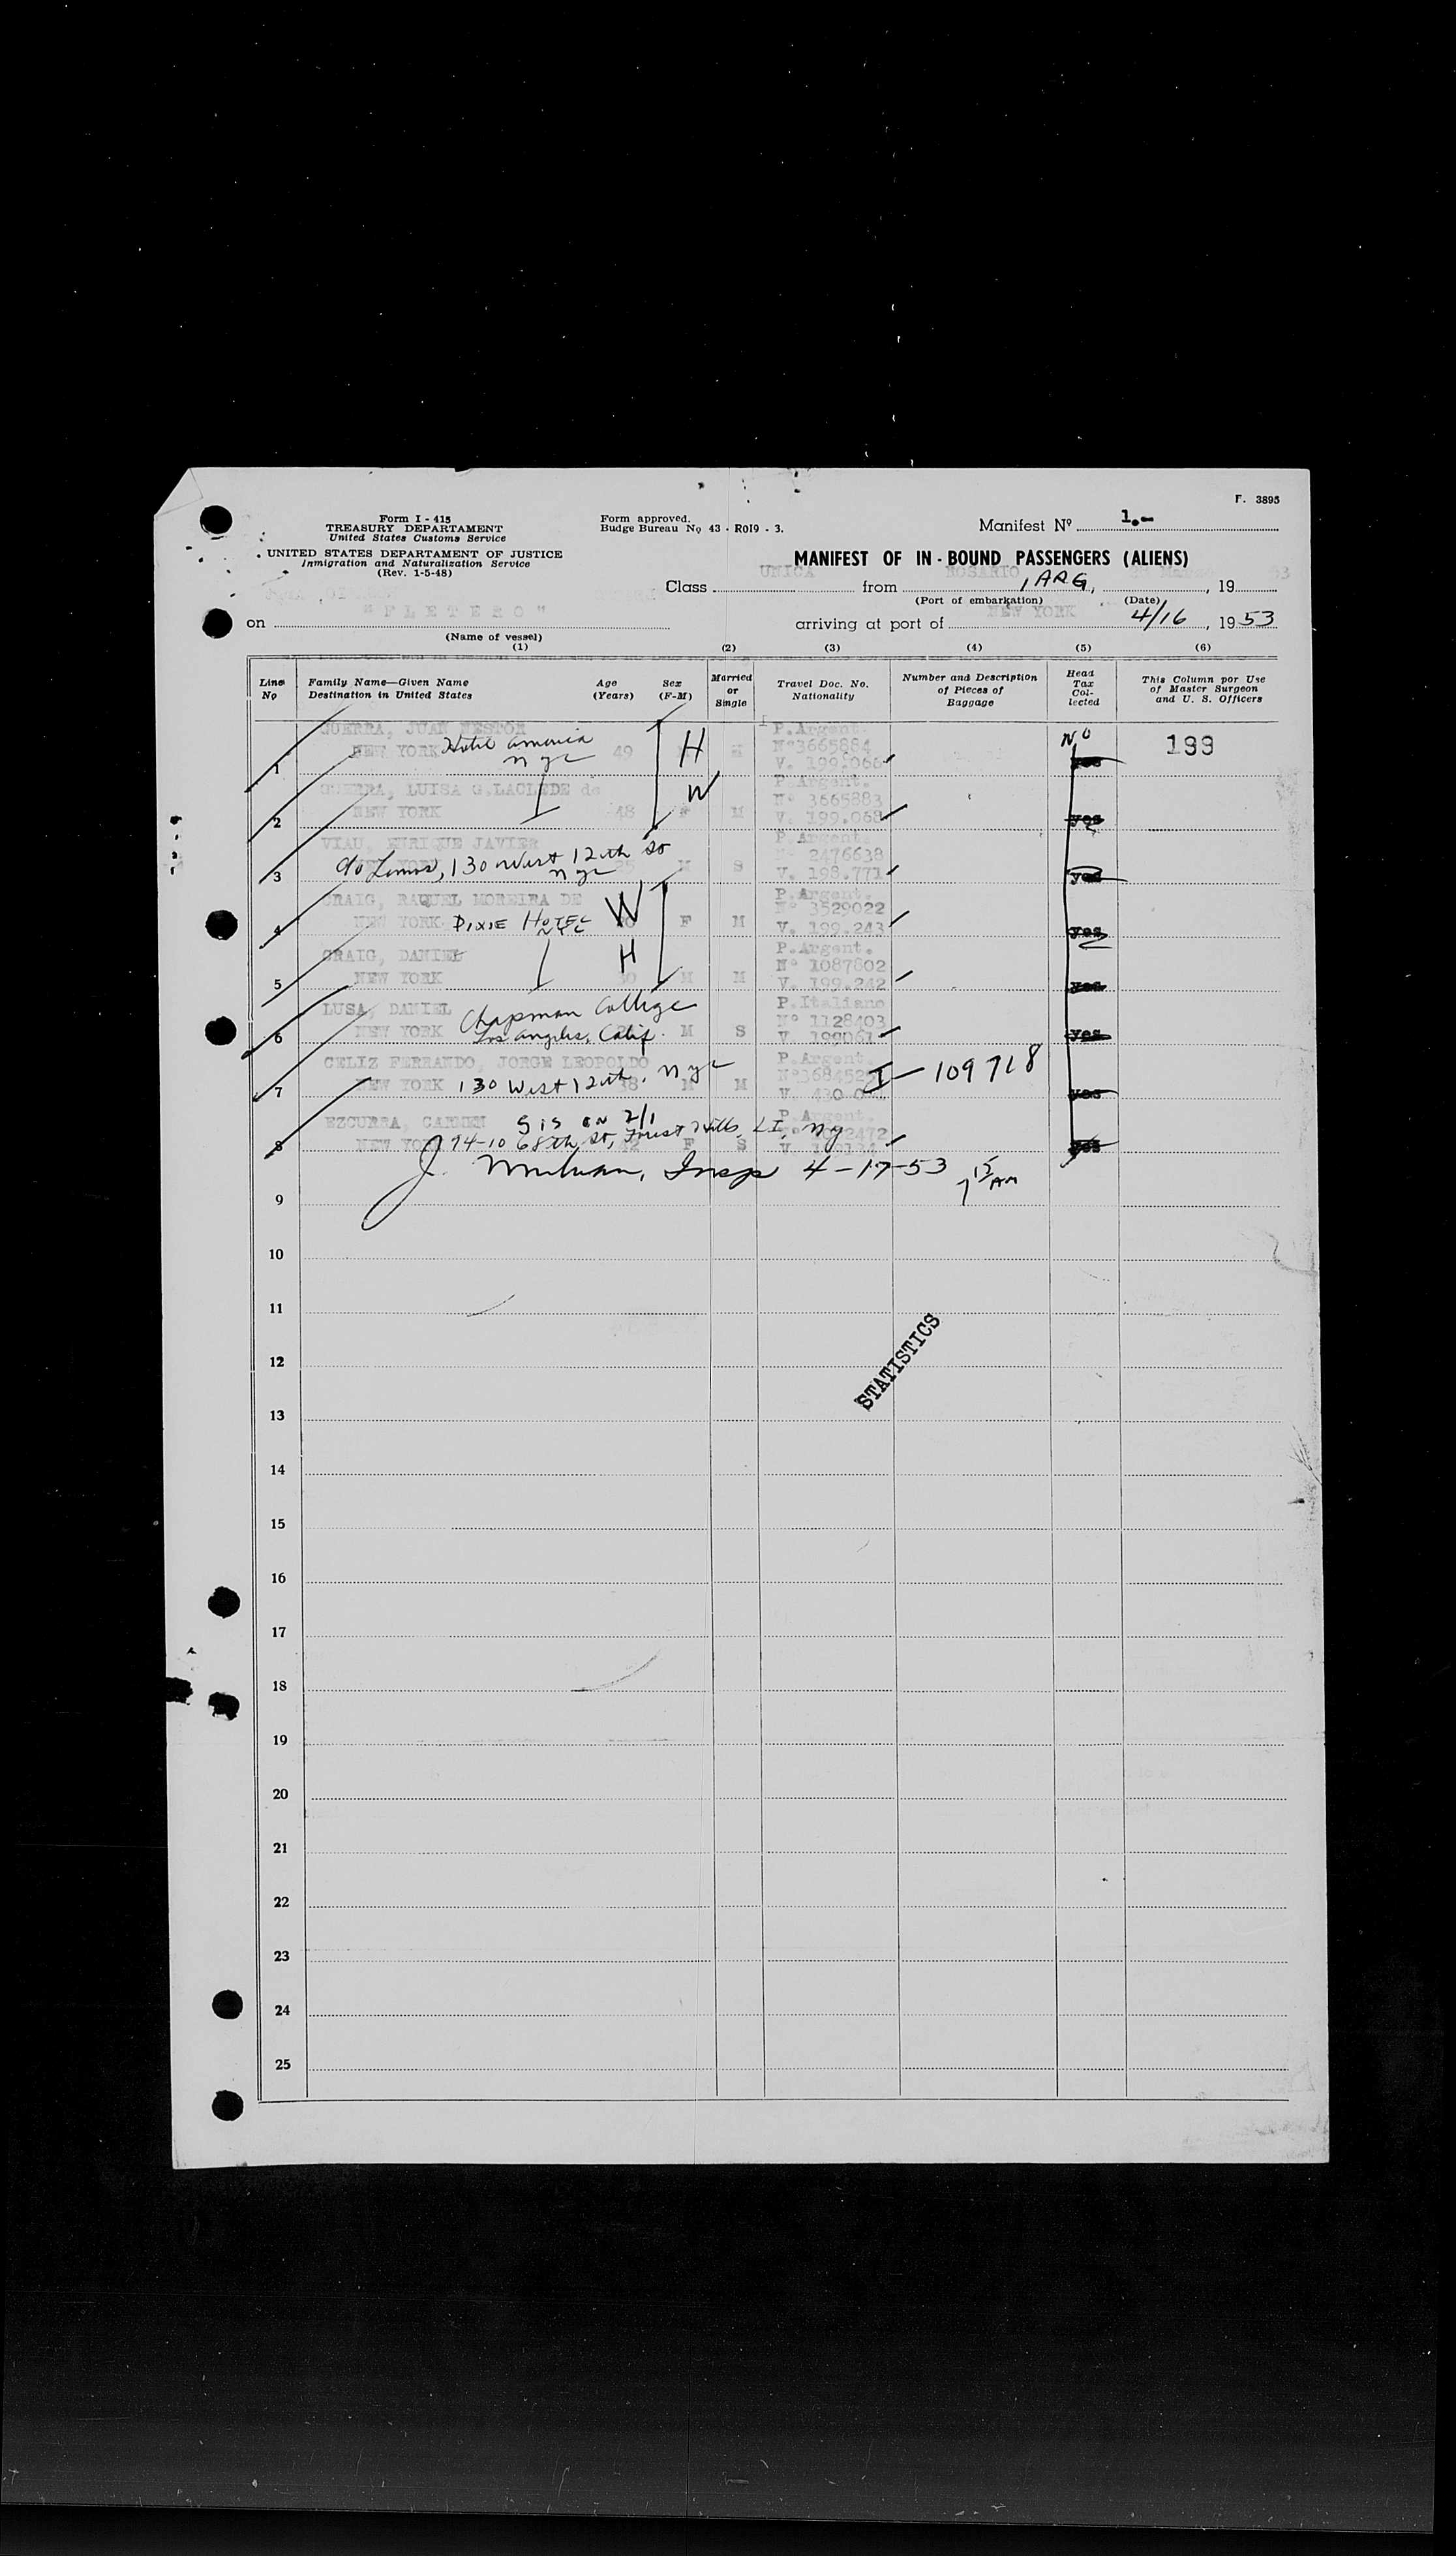 F. 3895
Form I - 415
TREASURY DEPARTAMENT
United States Customs Service
Form approved.
Budge Bureau No 43 - R019 - 3.
Manifest Nº 1.-
UNITED STATES DEPARTAMENT OF JUSTICE
Inmigration and Naturalization Service
(Rev. 1-5-48)
MANIFEST OF IN - BOUND PASSENGERS (ALIENS)
Class UNICA from ROSARIO, ARG, 19 53
(Port of embarkation) (Date)
on "FLETERO" arriving at port of NEW YORK 4/16, 1953
(Name of vessel)
(1) (2) (3) (4) (5) (6)
Line Nº
Family Name—Given Name
Destination in United States
Age
(Years)
Sex
(F-M)
Married
or
Single
Travel Doc. No.
Nationality
Number and Description
of Pieces of
Baggage
Head
Tax
Col-
lected
This Column por Use
of Master Surgeon
and U. S. Officers
GUERRA, JUAN NESTOR P.Argent.
NEW YORK Hotel America 49 H Nº3665884 No 199
1 NYC V. 199.066 yes
GUERRA, LUISA G.LACLEDE de W P.Argent.
NEW YORK 48 F M Nº 3665883
2 V. 199.068 yes
VIAU, ENRIQUE JAVIER P.Argent.
c/o Lemos, 130 West 12th St M S 2476638
3 NYC V. 198.771 yes
CRAIG, RAQUEL MOREIRA DE W P.Argent.
NEW YORK DIXIE HOTEL F M Nº 3529022
4 NYC V. 199.243 yes
CRAIG, DANIEL H P.Argent.
NEW YORK 30 M M Nº 1087802
5 V. 199.242 yes
LUSA, DANIEL Chapman College P.Italiano
NEW YORK Los Angeles, Calif. M S Nº 1128403
6 V. 199061 yes
CELIZ FERRANDO, JORGE LEOPOLDO P.Argent.
NEW YORK 130 West 12th, NYC 38 M M I-109718
7 V. 430 yes
EZCURRA, CARMEN P.Argent.
NEW YORK 74-10 68th St, Forest Hills, LI, NY F S
8 yes
J. Insp 4-17-53 7 15 AM
9
10
11
12
STATISTICS
13
14
15
16
17
18
19
20
21
22
23
24
25